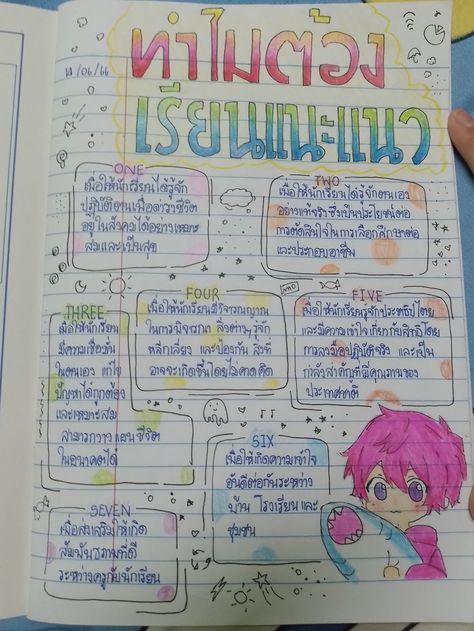 ทำไมต้อง
เรียนแนะแนว
ONE
เพื่อให้นักเรียนได้รู้จัก
ปฏิบัติตนเพื่อดำรงชีวิต
อยู่ในสังคมได้อย่างเหมาะ
สมและเป็นสุข
TWO
เพื่อให้นักเรียนได้รู้จักตนเอง
อย่างแท้จริงซึ่งเป็นประโยชน์ต่อ
การตัดสินใจในการเลือกศึกษาต่อ
และประกอบอาชีพ
THREE
เพื่อให้นักเรียน
มีความเชื่อมั่น
ในตนเอง แก้ไข
ปัญหาได้ถูกต้อง
และเหมาะสม
สามารถวางแผนชีวิต
ในอนาคตได้
FOUR
เพื่อให้นักเรียนมีวิจารณญาณ
ในการพิจารณา สิ่งต่างๆรู้จัก
หลีกเลี่ยง และป้องกัน สิ่งที่
อาจจะเกิดขึ้นโดยไม่คาดคิด
FIVE
เพื่อให้นักเรียนรู้จักประชาธิปไตย
และมีความเข้าใจเกี่ยวกับสิทธิโดย
การลงมือปฏิบัติจริง และเป็น
กำลังสำคัญที่มีคุณภาพของ
ประเทศชาติ
SIX
เพื่อให้เกิดความเข้าใจ
อันดีต่อกันระหว่าง
บ้าน โรงเรียน และ
ชุมชน
SEVEN
เพื่อส่งเสริมให้เกิด
สัมพันธภาพที่ดี
ระหว่างครูกับนักเรียน